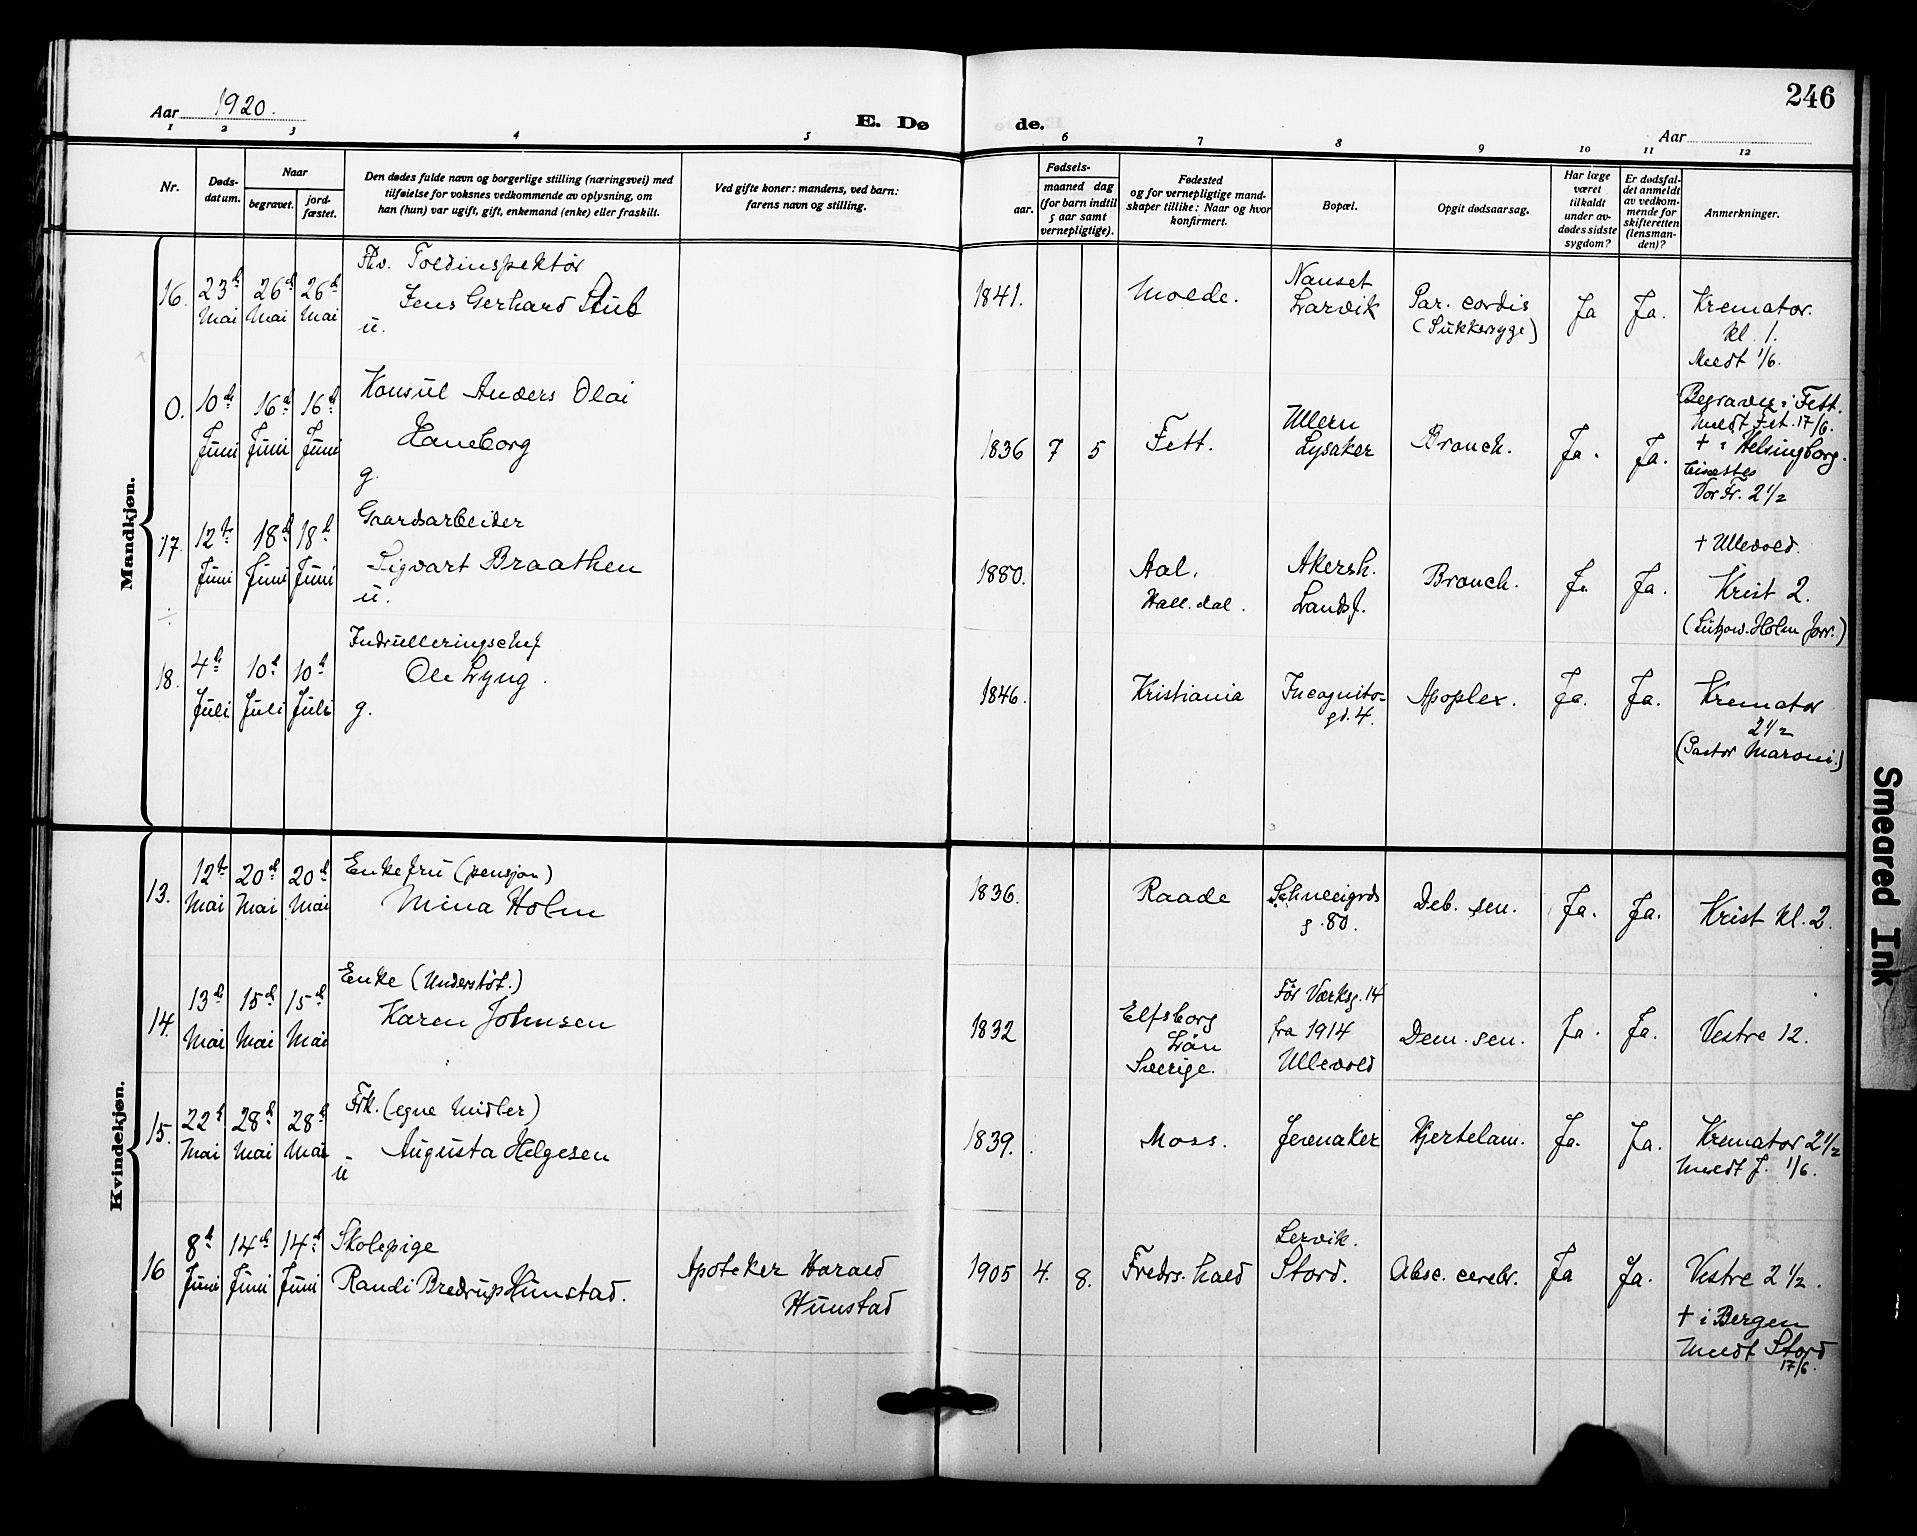 246
Aar 1920.
E. Dø de.
Aar
1 2 3 4 5 6 7 8 9 10 11 12
Nr.
Døds-
datum.
Naar
begravet.
jord-
fæstet.
Den dødes fulde navn og borgerlige stilling (næringsvei) med
tilføielse for voksnes vedkommende av oplysning, om
han (hun) var ugift, gift, enkemand (enke) eller fraskilt.
Ved gifte koner: mandens, ved barn:
farens navn og stilling.
Fødsels-
aar.
maaned dag
(for barn indtil
5 aar samt
vernepligtige).
Fødested
og for vernepligtige mand-
skaper tillike: Naar og hvor
konfirmert.
Bopæl.
Opgit dødsaarsag.
Har læge
været
tilkaldt
under av-
dødes sidste
sygdom?
Er dødsfal-
det anmeldt
av vedkom-
mende for
skifteretten
(lensman-
den)?
Anmerkninger.
Mandkjøn.
16. 23d Mai 26d Mai 26d Mai
Fhv. Toldinspektør
Jens Gerhard Stub
u.
1841. Molde.
Nanset
Larvik
Par. cordis
(Sukkersyge)
Ja Ja.
Kremator.
kl. 1.
Meldt 1/6.
0. 10de Juni 16d Juni 16d Juni
Konsul Anders Olai
Haneborg
g.
1836 7 5 Fett.
Ullern
Lysaker
Bronch.
Ja. Ja.
Begravet i Fett.
meldt Fet. 17/6.
+ i Helsingborg.
Vor Fr. 2 1/2
17. 12te Juni 18d Juni 18d Juni
Gaardsarbeider
Sigvart Braathen
u.
1880. Aal.
Hall. dal.
Akersh.
Landsf.
Bronch.
Ja Ja.
+ Ullevold.
Krist 2.
(Lützow-Holm Forr.)
18. 4de Juli 10d Juli 10d Juli
Indrulleringschef
Ole Lyng.
g.
1846. Kristiania
Incognito-
gd. 4.
Apoplex.
Ja. Ja.
Kremator
2 1/2
(Pastor Maroni.)
Kvindekjøn.
13. 12te Mai 20d Mai 20d Mai
Enkefru (pensjon)
Mina Holm
1836. Raade
g. 80.
Deb. sen.
Ja. Ja.
Krist kl. 2.
14. 13de Mai 15de Mai 15de Mai
Enke (Understøt.)
Karen Johnsen
1832
Elfsborg
Län
Sverige.
Før Værksg. 14
fra 1914
Ullevold
Dem. sen.
Ja. Ja.
Vestre 12.
15. 22d Mai 28d Mai 28d Mai
Frk. (egne Midler)
Augusta Helgesen
u
1839. Moss.
Jernaker
Hjertelam.
Ja. Ja.
Kremator 2 1/2
Meldt J. 1/6.
16 8d Juni 14de Juni 14d Juni
Skolepige
Randi Bredrup Hunstad.
Apoteker Harald
Hunstad
1905 4. 8. Fredrs.hald
Lervik.
Stord.
Absc. cerebr.
Ja Ja.
Vestre 2 1/2.
+ i Bergen
Meldt Stord
17/6.
Smeared Ink